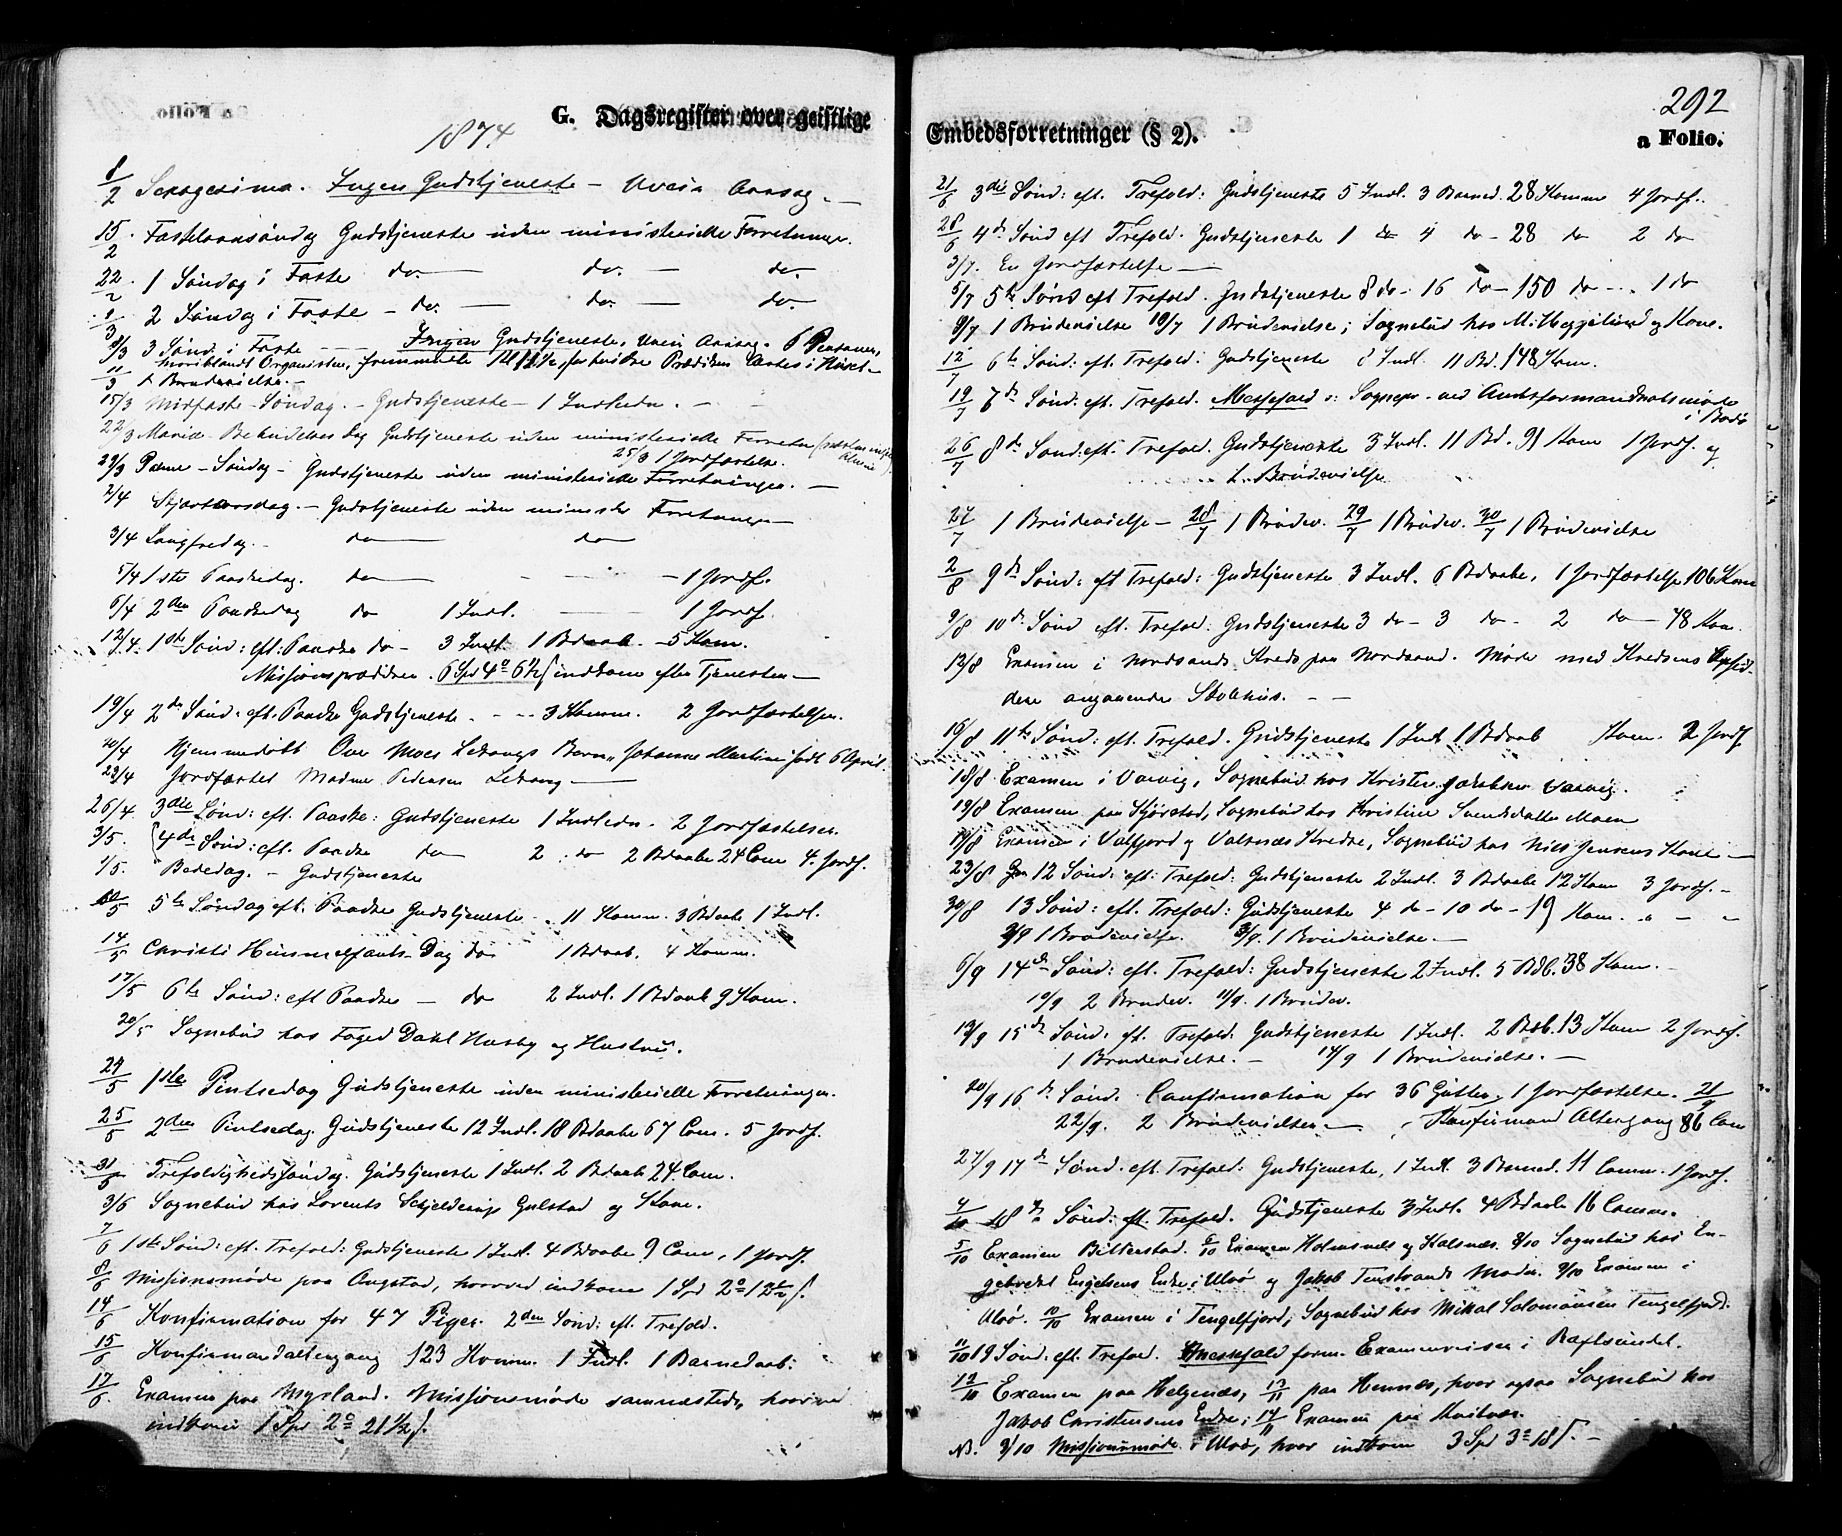 G. Dagsregister over geistlige
1874
8/2 Sexagesima. Ingen Gudstjeneste – Uveir Aarsag. –
15/2 Fastelavnsøndag Gudstjeneste uden ministerielle Forretninger.
22/2 1 Søndag i Faste do. – do. – do.
1/3 2 Søndag i Faste – do. – do. – do.
8/3 3 Sønd. i Faste – Ingen Gudstjeneste, Uveir Aarsag. 6 Personer,
hvoriblandt Organisten, fremmødte
11/3 1 Brudevielse. –
15/3 Midfaste Søndag. – Gudstjeneste – 1 Indledn. –
22/3 Mariæ Bebudelses Dag Gudstjeneste uden ministerielle Forretn
25/3 1 Jordfæstelse.
29/3 Palme-Søndag – Gudstjeneste uden ministerielle Forretninger. –
2/4 Skjærtorsdag. – Gudstjeneste uden minister Forretninger –
3/4 Langfredag. – do – do
5/4 1ste Paaskedag. do – – 1 Jordf.
6/4 2den Paaskedag do 1 Indl. – 1 Jordf.
12/4. 1ste Sønd: eft: Paaske do – 3 Indl. 1 Bdaab. – 5 Kom.
Missionsprædiken. indkom efter Tjenesten –
19/4 2den Sønd: eft. Paaske Gudstjeneste. – 3 Komm. 2 Jordfæstelser.
20/4 Hjemmedøbt Ove Moes Ledangs Barn, Johanna Martine født 6 April.
23/4 Jordfæstet Madme Pedersen Ledang –
26/4 3die Sønd: eft. Paaske: Gudstjeneste 1 Indledn. 2 Jordfæstelser.
3/5. 4de Sønd: eft. Paaske do 2 do 2 Bdaabe 24 Com 4 Jordf.
1/5. Bededag. – Gudstjeneste
10/5 5te Søndag eft. Paaske Gudstjeneste – 11 Komm. 3 Bdaabe 1 Indl.
14/5 Christi Himmelfarts-Dag do 1 Bdaab. 4 Komm.
17/5 6te Sønd: eft Paaske – do 2 Indl. 1 Bdaab 9 Kom.
20/5 Sognebud hos Foged Dahl Husby og Hustru.
24/5 1ste Pintsedag Gudstjeneste uden ministerielle Forretninger.
25/5 2den Pintsedag. Gudstjeneste 12 Indl. 18 Bdaabe 67 Com. 5 Jordf.
31/5 Trefoldighedssøndag. Gudstjeneste 1 Indl. 2 Bdaab 24 Com.
3/6 Sognebud hos Lorents Schjelderup Gulstad og Kone.
7/6 1ste Sønd: eft. Trefold: Gudstjeneste 1 Indl. 4 Bdaabe 9 Com, 1 Jordf.
8/6 Missionsmøde paa Ongstad, hvorved indkom 1 Spd
14/6 Konfirmation for 47 Piger. 2den Sønd: eft. Trefold.
15/6 Konfirmandaltergang 123 Komm. 1 Indl. 1 Barnedaab.
17/6 Examen paa Myrland. Missionsmøde sammesteds, hvorved
indkom 1 Spd 2º 21½ ſ.
292
Embedsforretninger (§ 2).
a Folio.
21/6 3die Sønd: eft. Trefold: Gudstjeneste 5 Indl. 3 Barned. 28 Komm 4 Jordf.
28/6 4de Sønd eft Trefold. Gudstjeneste 1 do 4 do – 28 do 2 do
3/7. En Jordfæstelse –
5/7 5te Sønd eft Trefold. Gudstjeneste 8 do – 16 do – 150 do – 1 do
9/7 1 Brudevielse 10/7 1 Brudevielse; Sognebud hos
12/7 6te Sønd: eft. Trefold: Gudstjeneste Indl. 11 Bd. 148 Kom.
19/7 7de Sønd: eft. Trefold. Messefald ɔ: Sognepr. ved Amtsformandskabsmøde
i Bodø
26/7 8de Sønd: eft. Trefold. Gudstjeneste 3 Indl. 11 Bd. 91 Kom 1 Jordf. og
1 Brudevielse
27/7 1 Brudevielse – 28/7 1 Brudev. 29/7 1 Brudev. 30/7 1 Brudevielse
2/8 9de Sønd: eft Trefold: Gudstjeneste 3 Indl. 6 Bdaabe, 1 Jordfæstelse 106 Kom
9/8 10de Sønd eft. Trefold: Gudstjeneste 3 do – 3 do – 2 do – 78 Kom.
12/8 Examen i Nordsands Kreds paa Nordsand. Møde med Kredsens Opsid-
dere angaaende Skolehus. – –
16/8 11te Sønd: eft. Trefold. Gudstjeneste 1 Indl 1 Bdaab Kom. 2 Jordf
18/8 Examen i Vasvig, Sognebud hos Kristen Jakobsen Vasvig.
19/8 Examen paa Kjørstad, Sognebud hos Kristine Svendsdatter Moen
19/8 Examen i Valfjord og Valsnæs Kredse, Sognebud hos Niels Jensens Kone –
23/8 12 Sønd: eft: Trefold: Gudstjeneste 2 Indl. 3 Bdaabe 12 Kom 3 Jordf. –
30/8 13 Sønd: eft. Trefold: Gudstjeneste 4 do – 10 do – 19 Kom. " – "
2/9 1 Brudevielse. 3/9. 1 Brudevielse. –
6/9 14de Sønd: eft. Trefold: Gudstjeneste 2 Indl. 5 Bdb. 38 Kom. –
10/9 2 Brudev. 11/9. 1 Brudev.
13/9 15de Sønd: eft. Trefold: Gudstjeneste 1 Indl. 2 Bdb. 13 Kom 2 Jordf.
1 Brudevielse. – 14/9 1 Brudevielse. –
20/9 16de Sønd. Confirmation for 36 Gutter, 1 Jordfæstelse. 21/9
22/9. 2 Brudevielser – Konfirmand Altergang 86 Com
27/9 17de Sønd: eft. Trefold: Gudstjeneste, 1 Indl. 3 Barned. 11 Comm. 1 Jordf.
4/10 18de Sønd: eft. Trefold. Gudstjeneste 3 Indl. 4 Bdaabe 16 Comm.
5/10 Examen Bitterstad. 6/10 Examen Holmsnæs og Kalsnæs. 8/10 Sognebud hos En-
gebret Engelsens Enke i Ulvø og Jakob Tenstrands Moder. 9/10 Examen i
Ulvø. 10/10 Examen i Tengelfjord; Sognebud hos Mikal Salomonsen Tengelfjord.
11/10 19 Sønd: eft. Trefold. Messefald form. Examensreiser i Raftsundet.
12/10 Examen paa Helgenæs, 13/11 paa Hennæs, hvor ogsaa Sognebud hos
Jakob Christensens Enke; 14/11 Examen paa
NB. 9/10 Missionsmøde i Ulvø, hvor indkom 3 Spd 3º 18 ſ. –